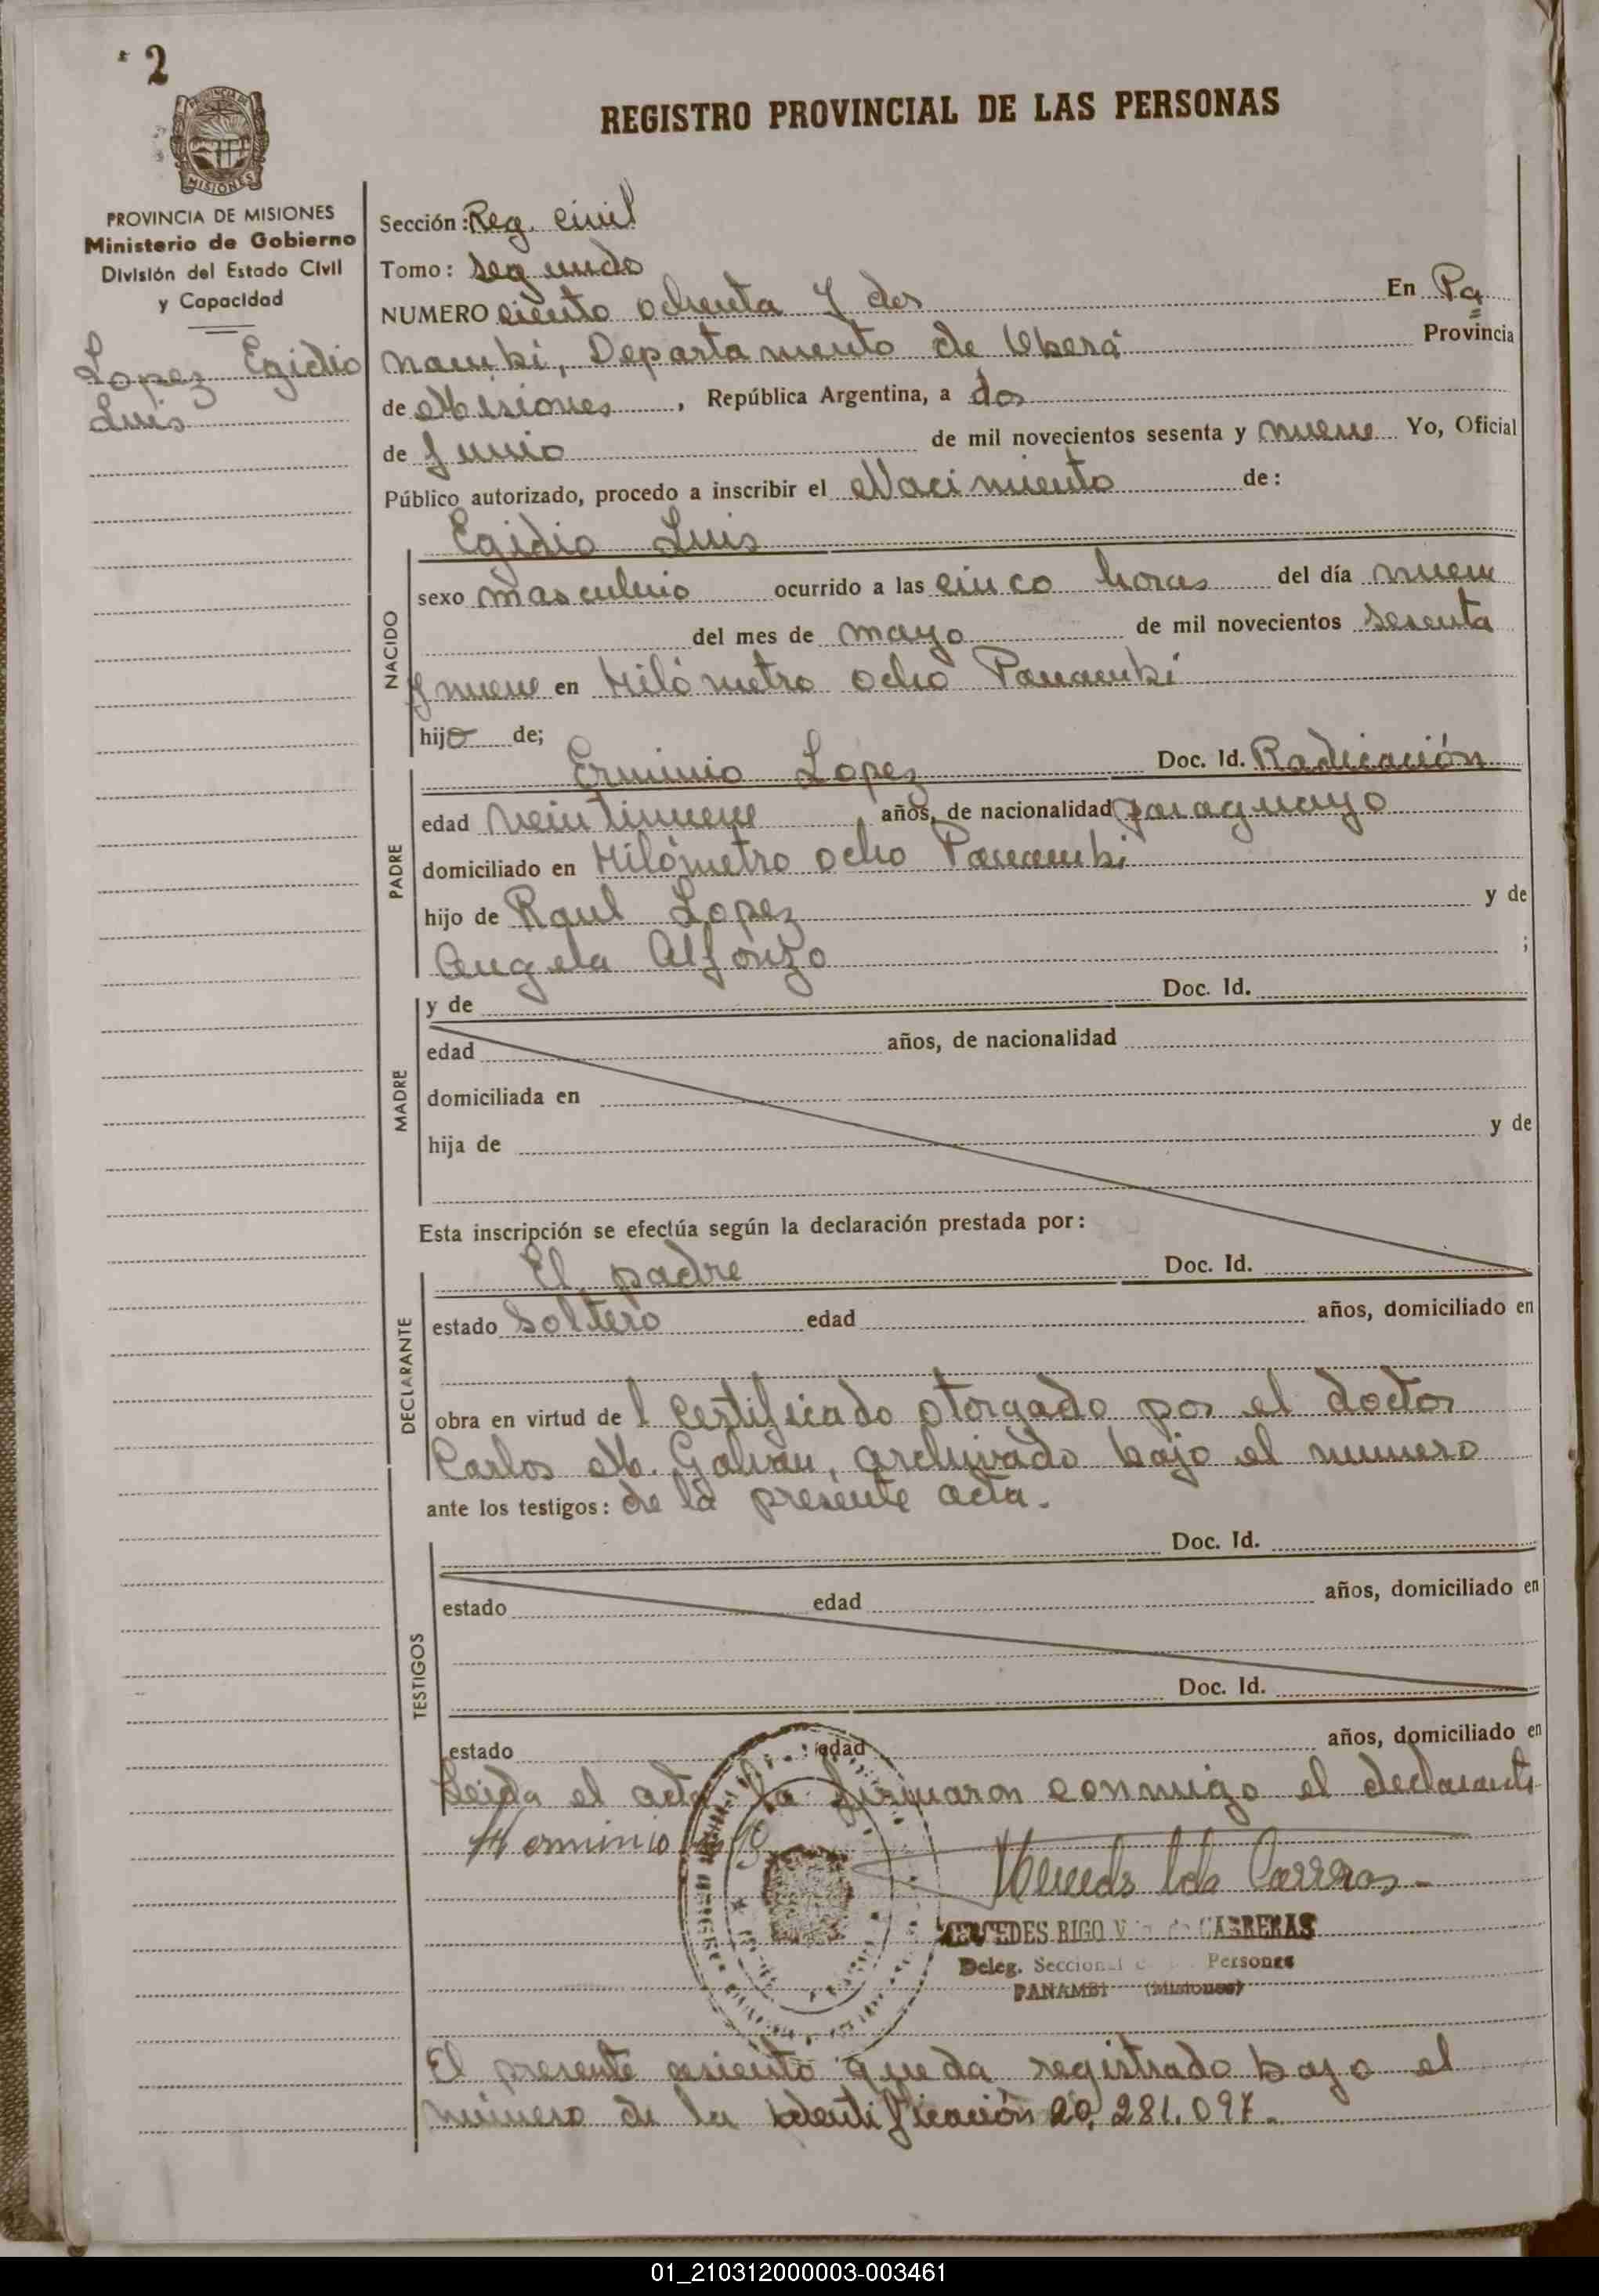 2
REGISTRO PROVINCIAL DE LAS PERSONAS
PROVINCIA DE MISIONES
Ministerio de Gobierno
División del Estado Civil
y Capacidad
Lopez Egidio
Luis
Sección: Reg. Civil
Tomo: segundo
NUMERO ciento ochenta y dos En Pa
nambi, Departamento de Oberá Provincia
de Misiones, República Argentina, a dos
de Junio de mil novecientos sesenta y nueve Yo, Oficial
Público autorizado, procedo a inscribir el Nacimiento de:
NACIDO
Egidio Luis
sexo masculino ocurrido a las cinco horas del día nueve
del mes de mayo de mil novecientos sesenta
y nueve en Kilómetro ocho Panambi
hijo de;
PADRE
Erminio Lopez Doc. Id. Radicación
edad veintinueve años, de nacionalidad paraguayo
domiciliado en Kilómetro ocho Panambi
hijo de Raul Lopez y de
Angela Alfonzo ;
MADRE
y de Doc. Id.
edad años, de nacionalidad
domiciliada en
hija de y de
Esta inscripción se efectúa según la declaración prestada por:
DECLARANTE
El padre Doc. Id.
estado Soltero edad años, domiciliado en
obra en virtud del Certificado otorgado por el doctor
Carlos M. Galvan, archivado bajo el numero
ante los testigos: de la presente acta.
TESTIGOS
Doc. Id.
estado edad años, domiciliado en
Doc. Id.
estado edad años, domiciliado en
Leida el acta la firmaron conmigo el declarante
Herminio
Carreras
MERCEDES RIGO V de CARRERAS
Deleg. Seccional Personas
PANAMBI (Misiones)
El presente asiento queda registrado bajo el
número de la identificación 20.281.097.
01_210312000003-003461